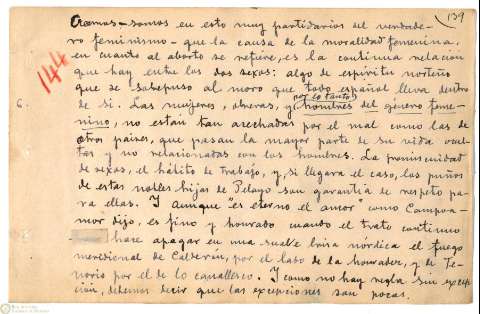 139
144
Creemos - somos en esto muy partidarios del verdade-
ro feminismo - que la causa de la moralidad femenina,
en cuanto al aborto se refiere, es la continua relación
que hay entre los dos sexos: algo de espíritu norteño
que se sobrepuso al moro que todo español lleva dentro
por lo tanto
6. de si. Las mujeres, obreras, y hombres del género feme-
nino, no están tan acechadas por el mal como las de
otros paises, que pasan la mayor parte de su vida ocul-
tas y no relacionadas con los hombres. La promiscuidad
de sexos, el hábito de trabajo, y, si llegara el caso, los puños
de estas nobles hijas de Pelayo son garantía de respeto pa-
ra ellas. Y aunque "es eterno el amor" como Campoa-
mor dijo, es fino y honrado cuando el trato continuo
hace apagar en una suave brisa nórdica el fuego
meredional de Calderón, por el lado de la honradez, y de Te-
norio por el de lo canallesco. Y como no hay regla sin excep-
ción, debemos decir que las excepciones son pocas.